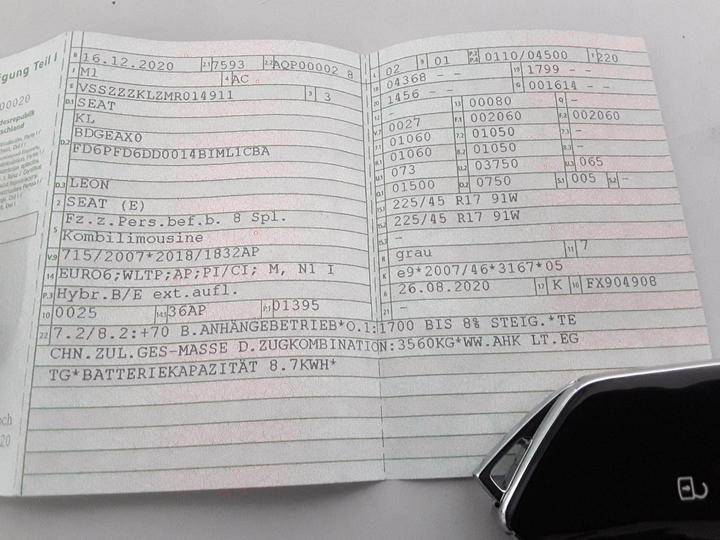 gung Teil I
00020
desrepublik
tschland
B 16.12.2020 2.1 7593 2.2 AQP00002 8
J M1 4 AC
E VSSZZZKLZMR014911 3 3
D.1 SEAT
KL
D.2 BDGEAX0
FD6PFD6DD0014BIML1CBA
D.3 LEON
2 SEAT (E)
5 Fz.z.Pers.bef.b. 8 Spl.
Kombilimousine
V.9 715/2007*2018/1832AP
14 EURO6;WLTP;AP;PI/CI; M, N1 I
P.3 Hybr.B/E ext.aufl.
10 0025 14.1 36AP P.1 01395
L 02 9 01 P.2 P.4 0110/04500 T 220
18 04368 - - 19 1799 - -
20 1456 - - G 001614 - -
12 - 13 00080 Q -
V.7 0027 F.1 002060 F.2 002060
7.1 01060 7.2 01050 7.3 -
8.1 01060 8.2 01050 8.3 -
U.1 073 U.2 03750 U.3 065
O.1 01500 O.2 0750 S.1 005 S.2 -
15.1 225/45 R17 91W
15.2 225/45 R17 91W
15.3 -
R grau 11 7
K e9*2007/46*3167*05
6 26.08.2020 17 K 16 FX904908
21 -
22 7.2/8.2:+70 B.ANHÄNGEBETRIEB*O.1:1700 BIS 8% STEIG.*TE
CHN.ZUL.GES-MASSE D.ZUGKOMBINATION:3560KG*WW.AHK LT.EG
TG*BATTERIEKAPAZITÄT 8.7KWH*
och
20